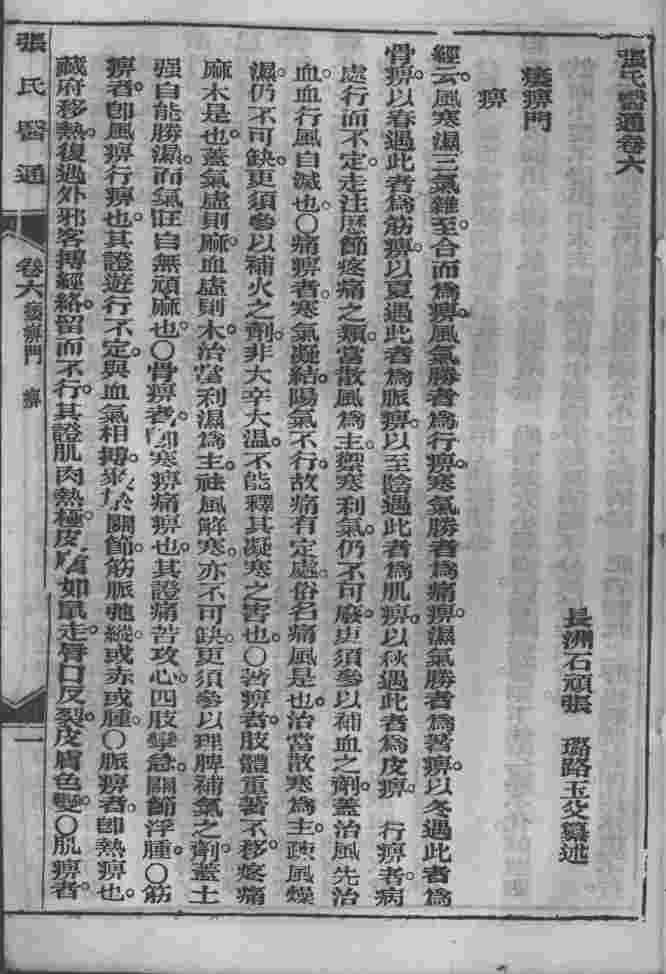 張氏醫通卷六
長洲石頑張　璐路玉父纂述
痿痹門
痹
經云。風寒濕三氣雜至。合而爲痹。風氣勝者爲行痹。寒氣勝者爲痛痹。濕氣勝者爲著痹。以冬遇此者爲
骨痹。以春遇此者爲筋痹。以夏遇此者爲脈痹。以至陰遇此者爲肌痹。以秋遇此者爲皮痹。　行痹者。病
處行而不定。走注歷節疼痛之類。當散風爲主。禦寒利氣。仍不可廢。更須參以補血之劑。蓋治風先治
血。血行風自滅也。〇痛痹者。寒氣凝結。陽氣不行。故痛有定處。俗名痛風是也。治當散寒爲主。疎風燥
濕。仍不可缺。更須參以補火之劑。非大辛大温。不能釋其凝寒之害也。〇著痹者。肢體重著不移。疼痛
麻木是也。蓋氣虛則麻。血虛則木。治當利濕爲主。祛風解寒。亦不可缺。更須參以理脾補氣之劑。蓋土
强自能勝濕。而氣旺自無頑麻也。〇骨痹者。卽寒痹痛痹也。其證痛苦攻心。四肢攣急。關節浮腫。〇筋
痹者。卽風痹行痹也。其證遊行不定。與血氣相搏。聚於關節。筋脈弛縱。或赤或腫。〇脈痹者。卽熱痹也。
藏府移熱。復遇外邪。客搏經絡。留而不行。其證肌肉熱極。皮膚如鼠走。脣口反裂。皮膚色變。〇肌痹者。
張氏醫通
卷六
痿痹門　痹
一